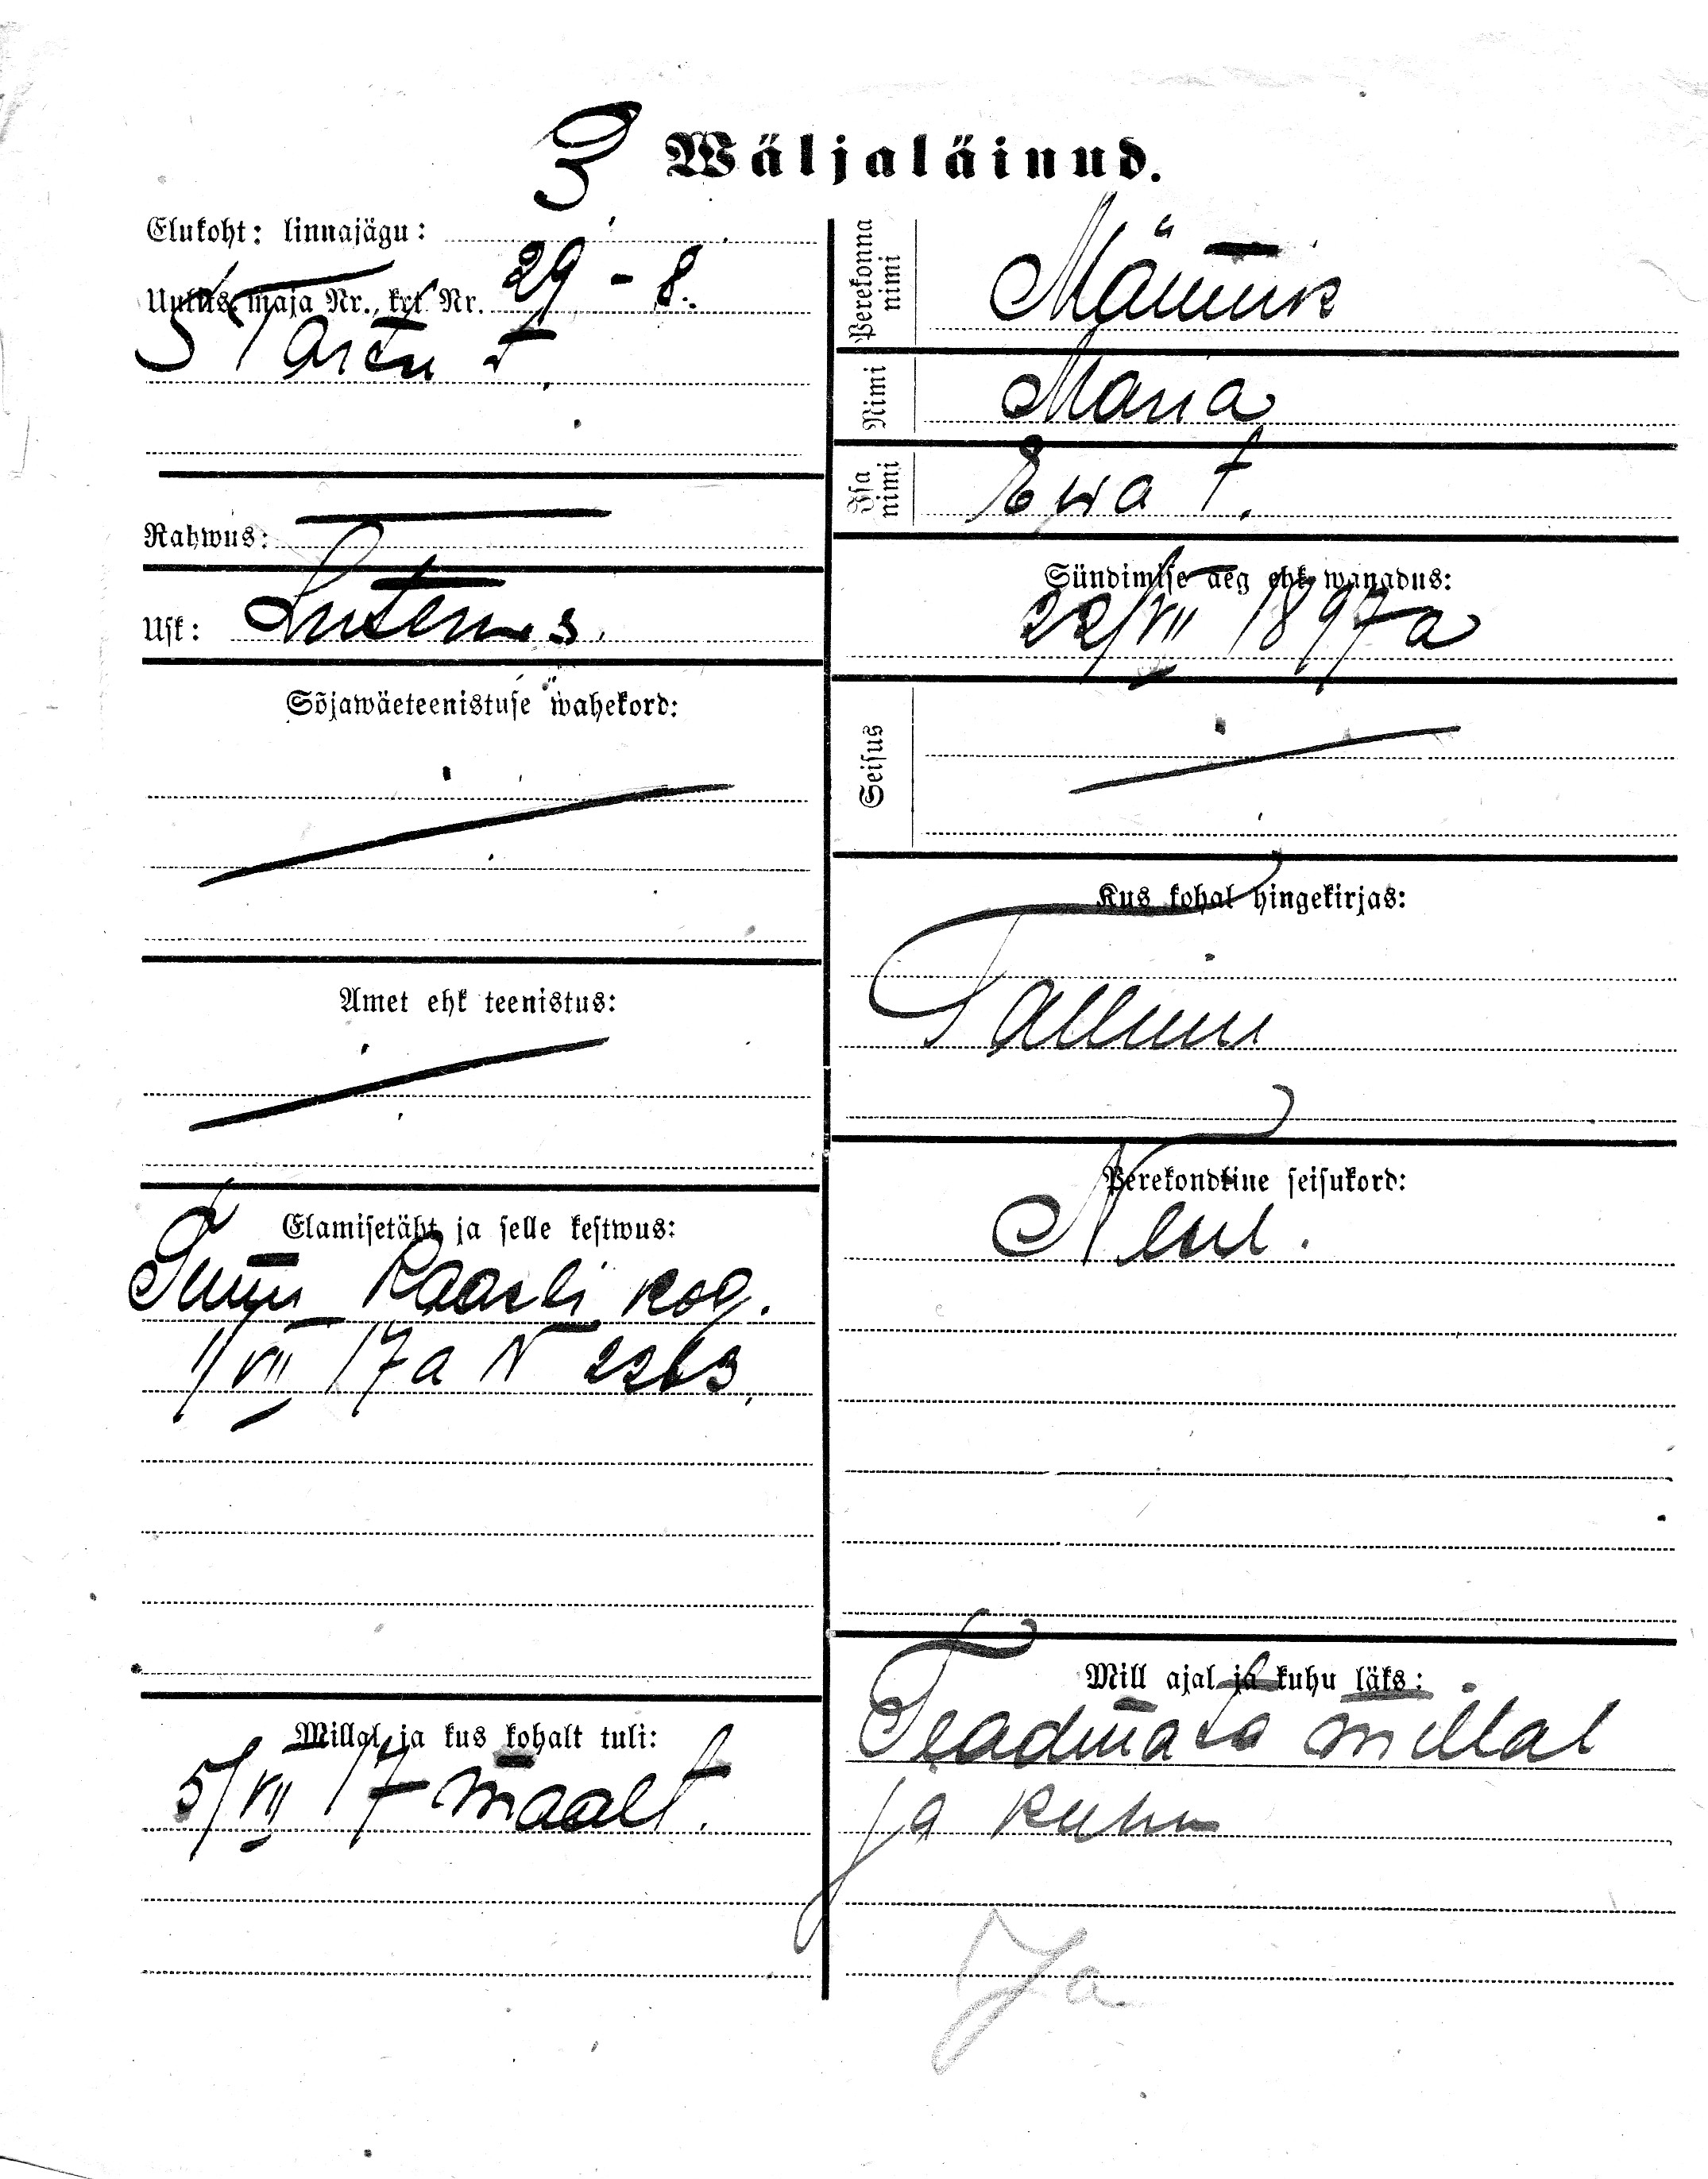 3 Wäljaläinud.
Elukoht: linnajägu:
Uulits, maja Nr., krt. Nr. 29 - 8.
S Tartu t.
Rahwus:
Usk: Luterus
Sõjawäeteenistuse wahekord:
Amet ehk teenistus:
Elamisetäht ja selle kestwus:
kog.
1/VII 17 a N 2263.
Millal ja kus kohalt tuli:
5/VII 17 maalt.
Perekonna nimi Männik
Nimi Maria
Isa nimi Ewa t.
Sündimise aeg ehk wanadus:
22/VII 1897 a
Seisus
Kus kohal hingekirjas:
Tallinn
Perekondline seisukord:
Mill ajal ja kuhu läks:
Teadmata millal
ja kuhu
Ja